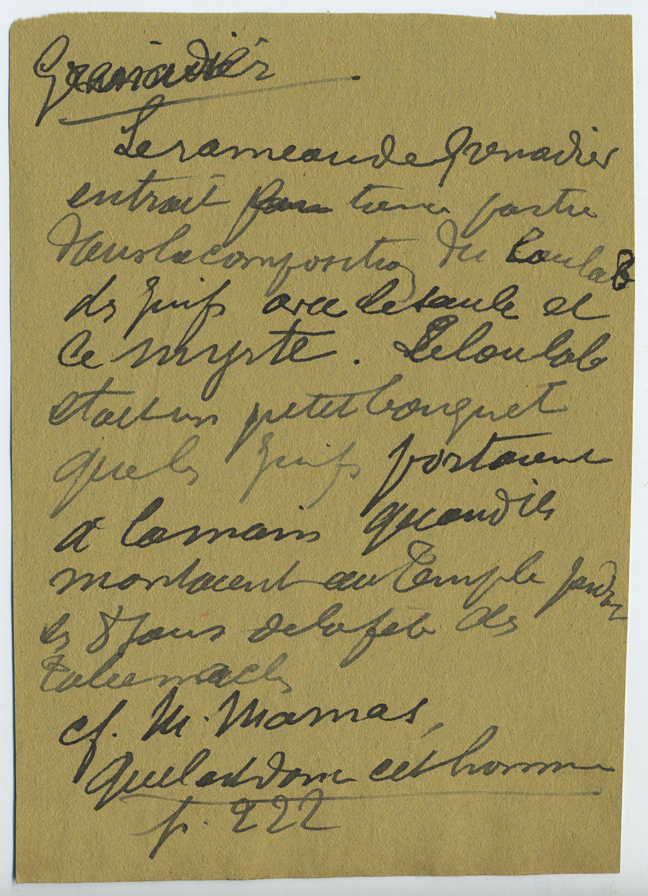 Grenadier
Le rameau de Grenadier
entrait partie
dans la composition du Loulab
des Juifs avec le saule et
le myrte. Le loulab
était un petit bouquet
que les Juifs portaient
à la main quand ils
montaient au Temple pendant
les 8 jours de la fête des
Tabernacles
cf. M. Mamas,
Quel est donc cet homme
p. 222